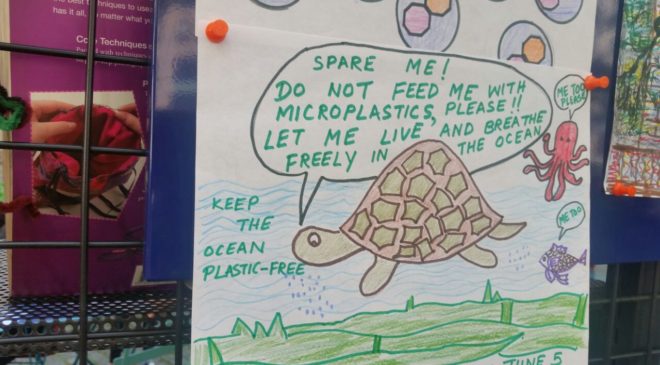 the best techniques to use
has it all, no matter what yo
Core Techniques
SPARE ME!
DO NOT FEED ME WITH
MICROPLASTICS, PLEASE!!
LET ME LIVE AND BREATHE
FREELY IN THE OCEAN
ME TOO
PLEASE
ME TOO
KEEP
THE
OCEAN
PLASTIC-FREE
JUNE 5